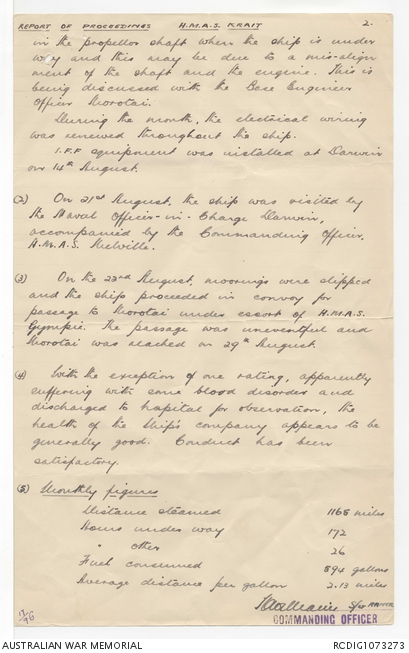 REPORT OF PROCEEDINGS H.M.A.S. KRAIT 2.
in the propellor shaft when the ship is under
way and this may be due to a mis-align
ment of the shaft and the engine. This is
being discussed with the Base Engineer
Officer Morotai.
During the month, the electrical wiring
was renewed throughout the ship.
I.F.F equipment was installed at Darwin
on 14th August.
(2) On 21st August, the ship was visited by
the Naval Officer-in-Charge Darwin,
accompanied by the Commanding Officer,
H.M.A.S. Melville.
(3) On the 23rd August, moorings were slipped
and the ship proceeded in convoy for
passage to Morotai under escort of H.M.A.S.
Gympie. The passage was uneventful and
Morotai was reached on 29th August.
(4) With the exception of one rating, apparently
suffering with some blood disorder and
discharged to hospital for observation, the
health of the ship's company appears to be
generally good. Conduct has been
satisfactory.
(5) Monthly figures
Distance steamed 1165 miles
Hours under way 172
" other 26
Fuel consumed 594 gallons
Average distance per gallon 2.13 miles
COMMANDING OFFICER
AUSTRALIAN WAR MEMORIAL RCDIG1073273